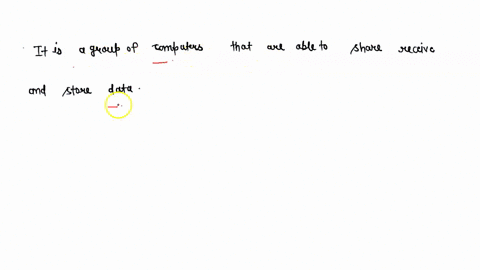 It is a group of computers that are able to share receive
and store data.